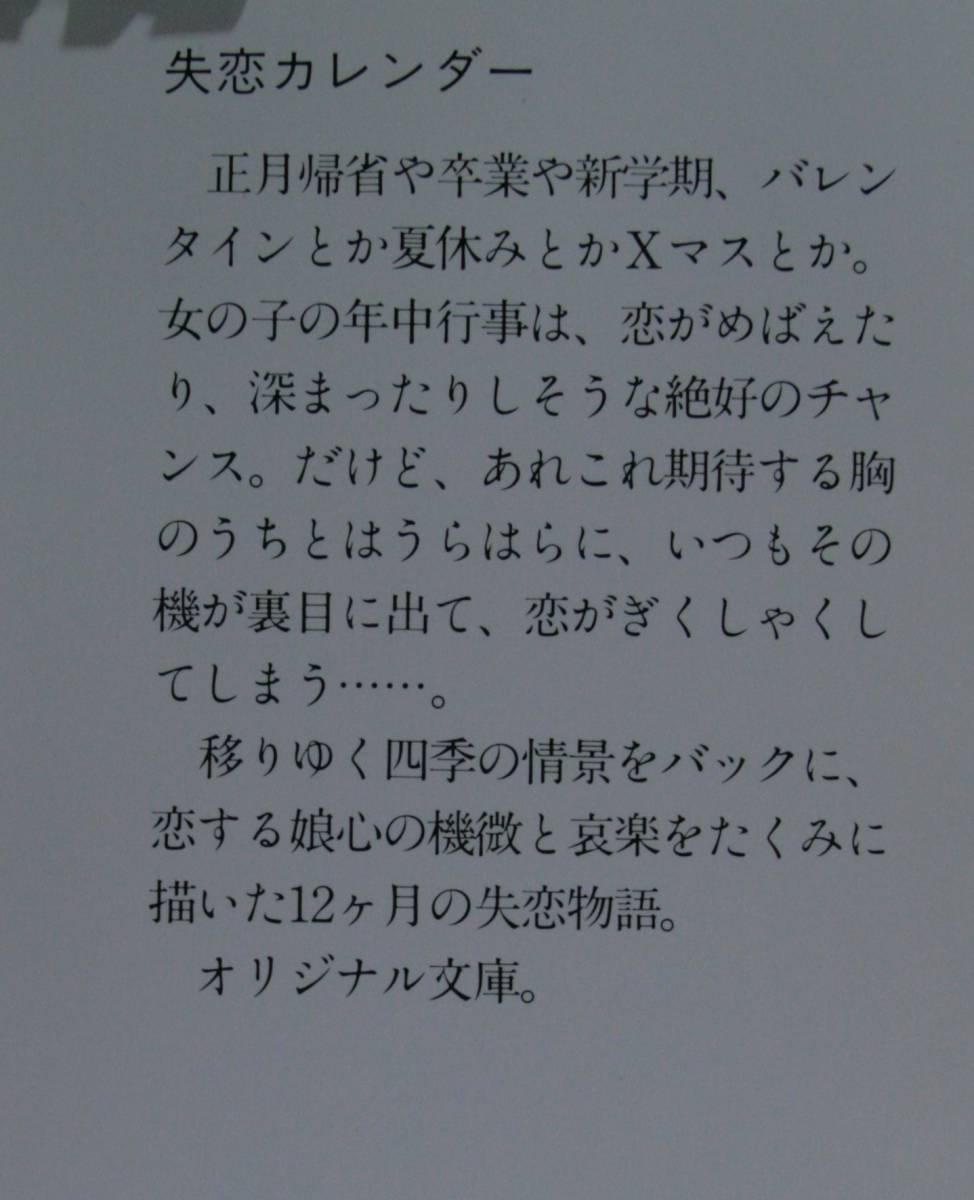 失恋カレンダー
正月帰省や卒業や新学期、バレン
タインとか夏休みとかXマスとか。
女の子の年中行事は、恋がめばえた
り、深まったりしそうな絶好のチャ
ンス。だけど、あれこれ期待する胸
のうちとはうらはらに、いつもその
機が裏目に出て、恋がぎくしゃくし
てしまう……。
移りゆく四季の情景をバックに、
恋する娘心の機微と哀楽をたくみに
描いた12ヶ月の失恋物語。
オリジナル文庫。